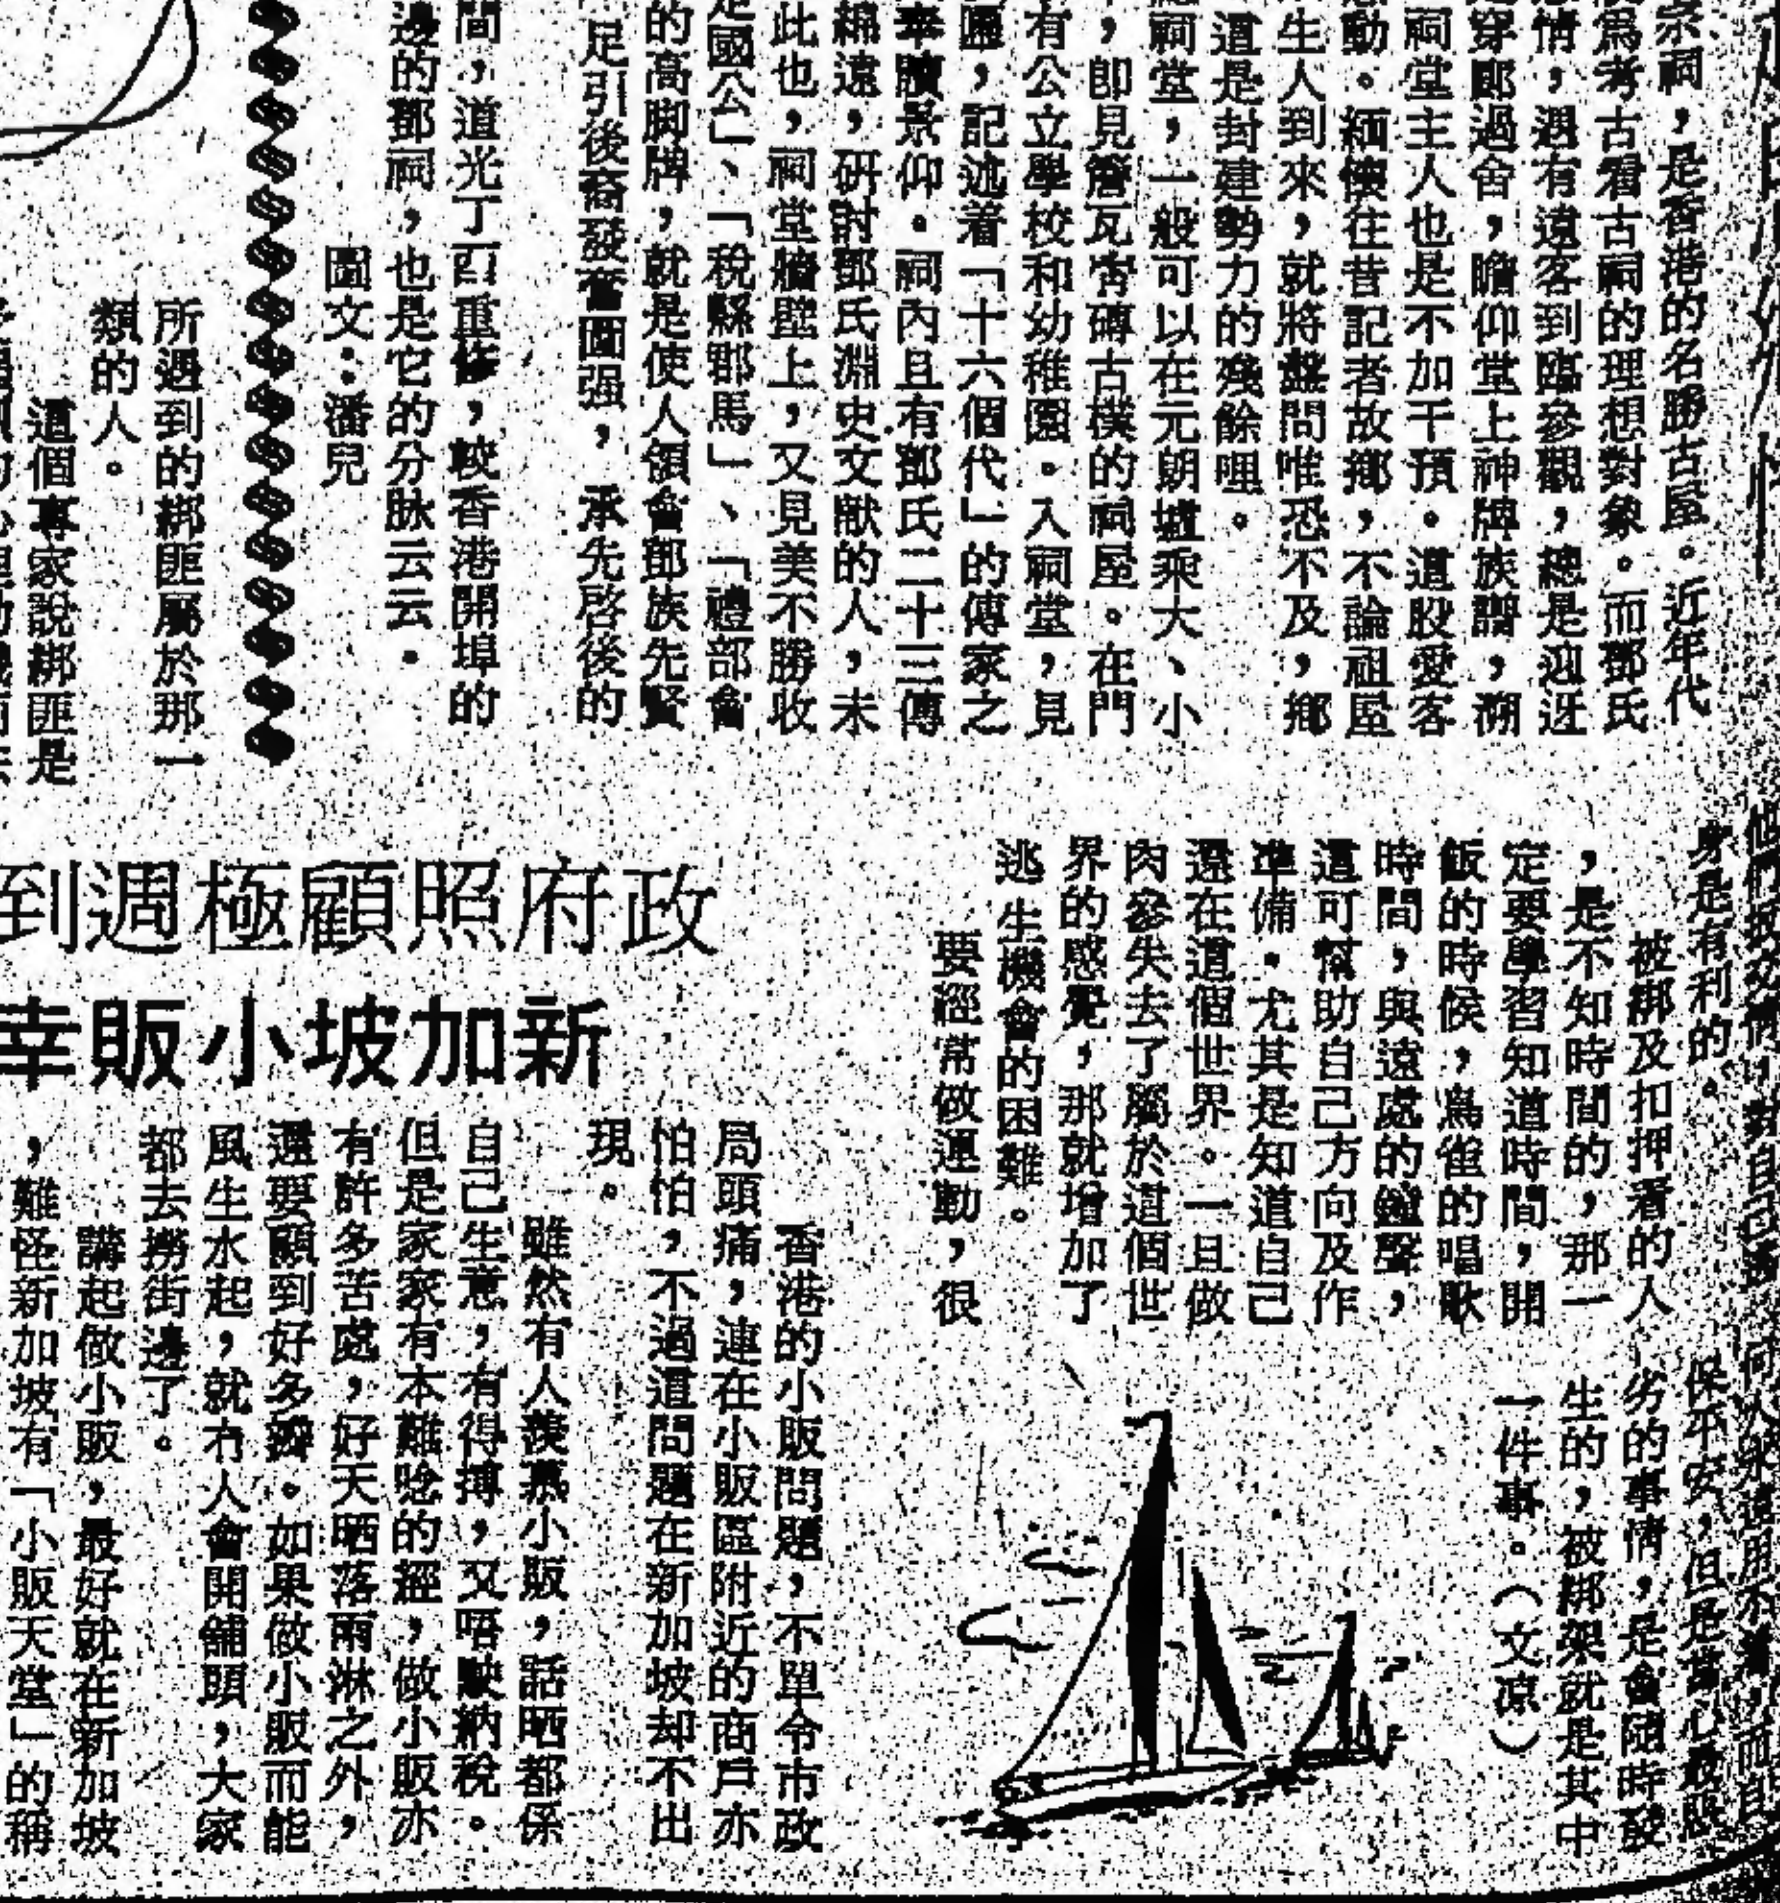 宗祠，是香港的名勝古屋。近年代
為考古看古祠的理想對象。而鄧氏
情，遇有遠客到臨參觀，總是迎迓
穿鄉過舍，瞻仰堂上神牌族譜，溯
祠堂主人也是不加干預。這股愛客
動。緬懷往昔記者故鄉，不論祖屋
生人到來，就將盤問唯恐不及，鄉
這是封建勢力的殘餘哩。
祠堂，一般可以在元朗墟乘大、小
，即見簷瓦青磚古樸的祠屋。在門
有公立學校和幼稚園。入祠堂，見
匾，記述着「十六個代」的傳家之
奉牘景仰。祠內且有鄧氏二十三傳
綿遠，研討鄧氏淵史文献的人，未
此也，祠堂牆壁上，又見美不勝收
國公」、「稅縣郡馬」、「禮部會
的高脚牌，就是使人領會鄧族先賢
足引後裔發奮圖强，承先啓後的
間，道光丁酉重修，較香港開埠的
邊的鄧祠，也是它的分脉云云。
圖文：潘兒
所遇到的綁匪屬於那一
類的人。
這個專家說綁匪是
身是有利的。
被綁及扣押着的人
，是不知時間的，那一
定要學習知道時間，開
飯的時候，鳥雀的唱歌
時間，與遠處的鐘聲，
這可幫助自己方向及作
準備。尤其是知道自己
還在這個世界。一旦做
肉參失去了屬於這個世
界的感覺，那就增加了
逃生機會的困難。
要經常做運動，很
保平安，但是提心
劣的事情，是會隨時發
生的，被綁架就是其中
一件事。（文凉）
政府照顧極週到
新加坡小販幸
香港的小販問題，不單令市政
局頭痛，連在小販區附近的商戶亦
怕怕，不過這問題在新加坡却不出
現。
雖然有人羨慕小販，話晒都係
自己生意，有得搏，又唔駛納稅。
但是家家有本難唸的經，做小販亦
有許多苦處，好天晒落雨淋之外，
還要顧到好多瓣。如果做小販而能
風生水起，就冇人會開舖頭，大家
都去撈街邊了。
講起做小販，最好就在新加坡
，難怪新加坡有「小販天堂」的稱